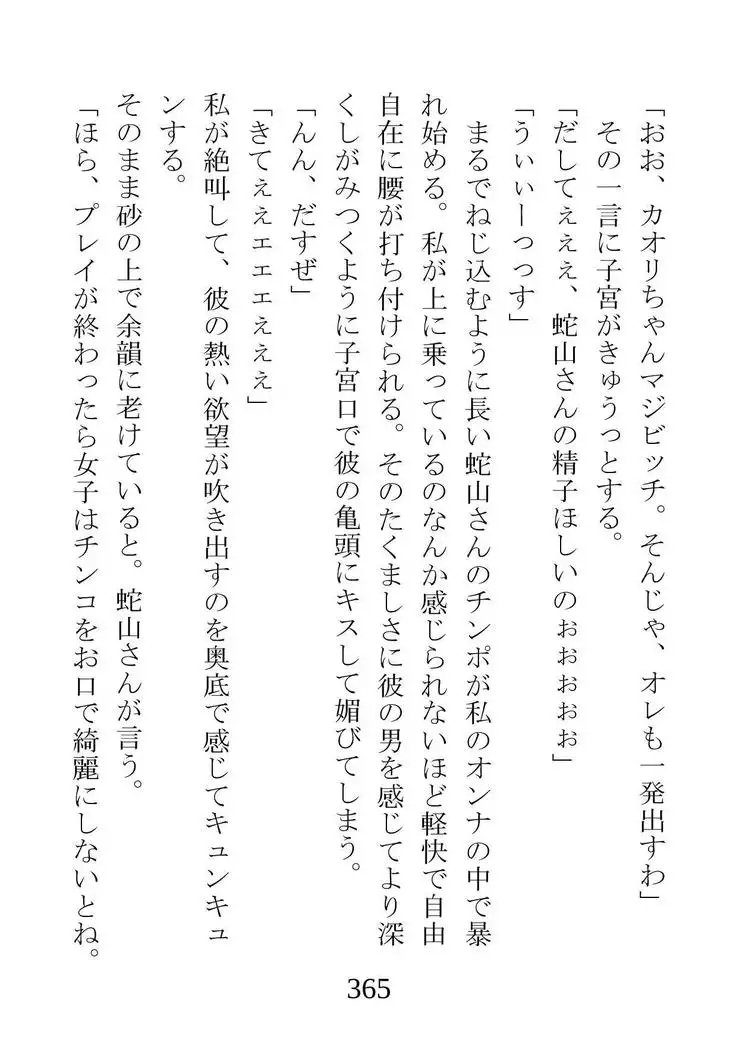 「おお、カオリちゃんマジビッチ。そんじゃ、オレも一発出すわ」
その一言に子宮がきゅうっとする。
「だしてぇぇぇ、蛇山さんの精子ほしいのぉぉぉぉぉ」
「うぃぃーっっす」
まるでねじ込むように長い蛇山さんのチンポが私のオンナの中で暴
れ始める。私が上に乗っているのなんか感じられないほど軽快で自由
自在に腰が打ち付けられる。そのたくましさに彼の男を感じてより深
くしがみつくように子宮口で彼の亀頭にキスして媚びてしまう。
「んん、だすぜ」
「きてぇぇェェェぇぇぇ」
私が絶叫して、彼の熱い欲望が吹き出すのを奥底で感じてキュンキュ
ンする。
そのまま砂の上で余韻に老けていると。蛇山さんが言う。
「ほら、プレイが終わったら女子はチンコをお口で綺麗にしないとね。
365